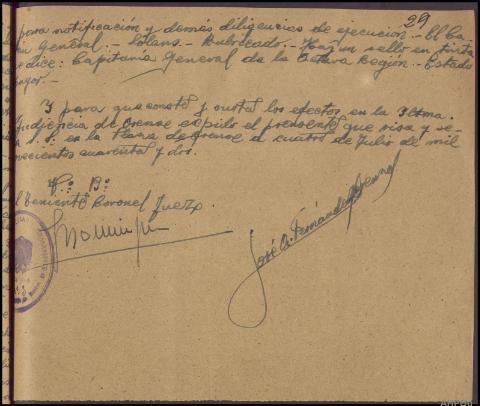 29
para notificación y demás diligencias de ejecución.- El Ca-
General.- Solans.- Rubricado.- Hay un sello en tinta
dice: Capitanía General de la Octava Región.- Estado
Mayor.-
Y para que conste y surta los efectos en la Iltma.
Audiencia de Orense expido el presente que visa y se-
S.S. en la Plaza de Orense a cuatro de Julio de mil
novecientos cuarenta y dos.
Vº Bº
El Teniente Coronel Juez
José A. Fernández